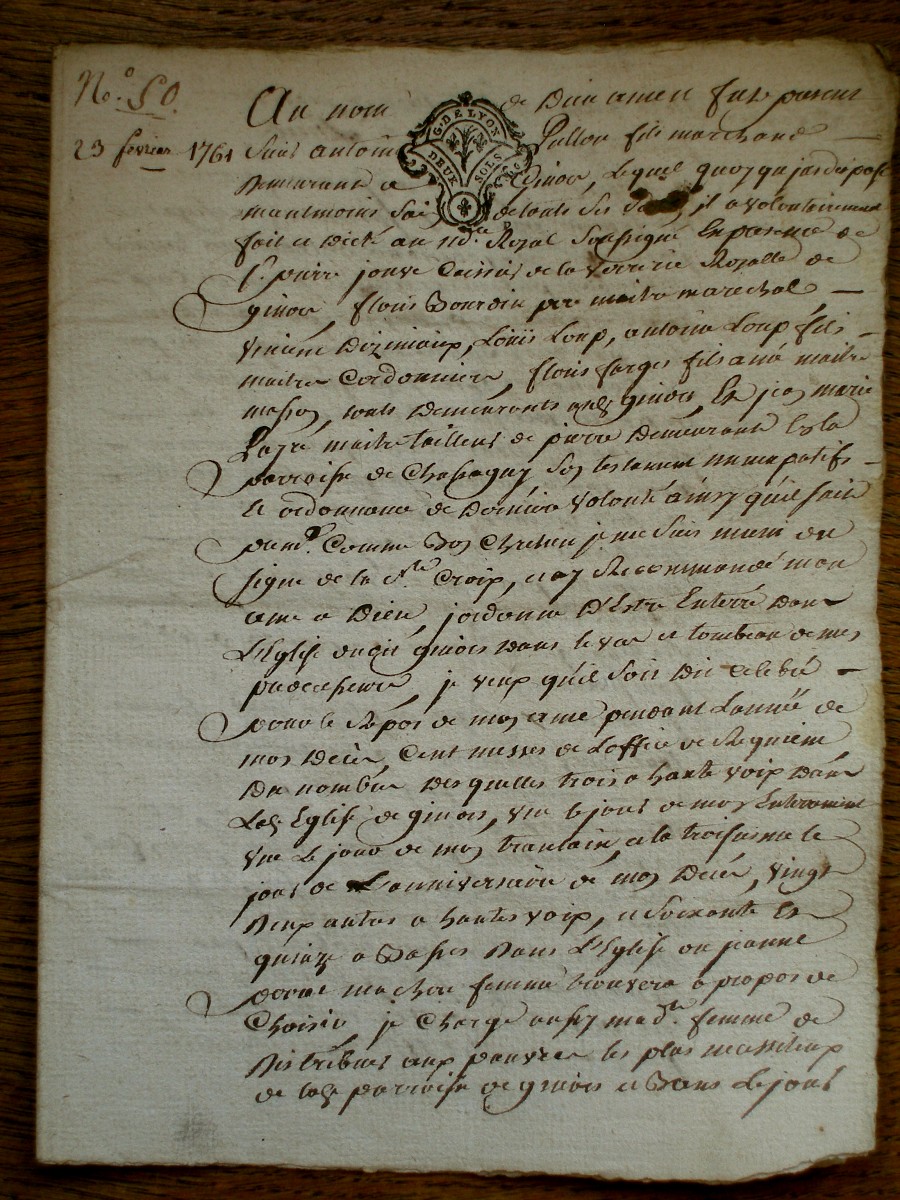 No. 50.
23 février 1761
Au nom de Dieu amen fut present
Sieur antoine Pullou fils marchand
Demeurant a Givors, Lequel quoyqu'jndisposé
neantmoins Sain de touts Ses Sens, il a volontairement
fait et Dicté au nd.re Royal Soussigné En presence de
Sr. pierre jouve Caissier de la Verrerie Royalle de
givors, fleuris Bourdin pere maitre marechal
Vincent Diziniaux, Loüis Loup, antoine Loup fils
maitres Cordonniers, fleuris farges fils ainé maitre
masson, touts Demeurants aud. givors, Et jean marie
maitre tailleur de pierre Demeurant En la
parroisse de Chassagny Son testament nuncupatif
Et ordonnance de Derniere Volonté ainsy qu'il Suit
prem.t Comme Bon Chretien je me Suis muni du
Signe de la Ste. Croix, et ay Recommandé mon
ame a Dieu, jordonne D'Estre Enterré Dans
L'Eglise dudit givors Dans le vas et tombeau de mes
predecesseurs, je veux qu'il Soit Dit et celebré
pour le Repos de mon ame pendant L'année de
mon Decès, Cent messes de L'office de Requiem
Du nombre Desquelles trois a haute voix Dans
Lad. Eglise de givors, une le jour de mon Enterrement
une Le jour de mon trantain, et la troisiesme le
jour de L'anniversaire de mon Decès, vingt
Deux autres a hautes voix, et Soixante Et
quinze a Basses Dans L'Eglise ou jeanne
ma chere femme trouvera a propos de
Choisir, je Charge aussy mad.te femme de
Distribuer aux pauvres les plus necessiteux
de lad. parroisse de givors et Dans Le jour
G. DE LYON
DEUX SOLS